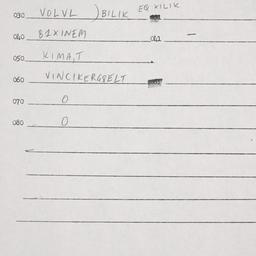 030 VOLVL ) BILIK EQ XILIK
040 BIXINEM 041 —
050 KIMA,T
060 VINCIKERGBELT
070 O
080 O